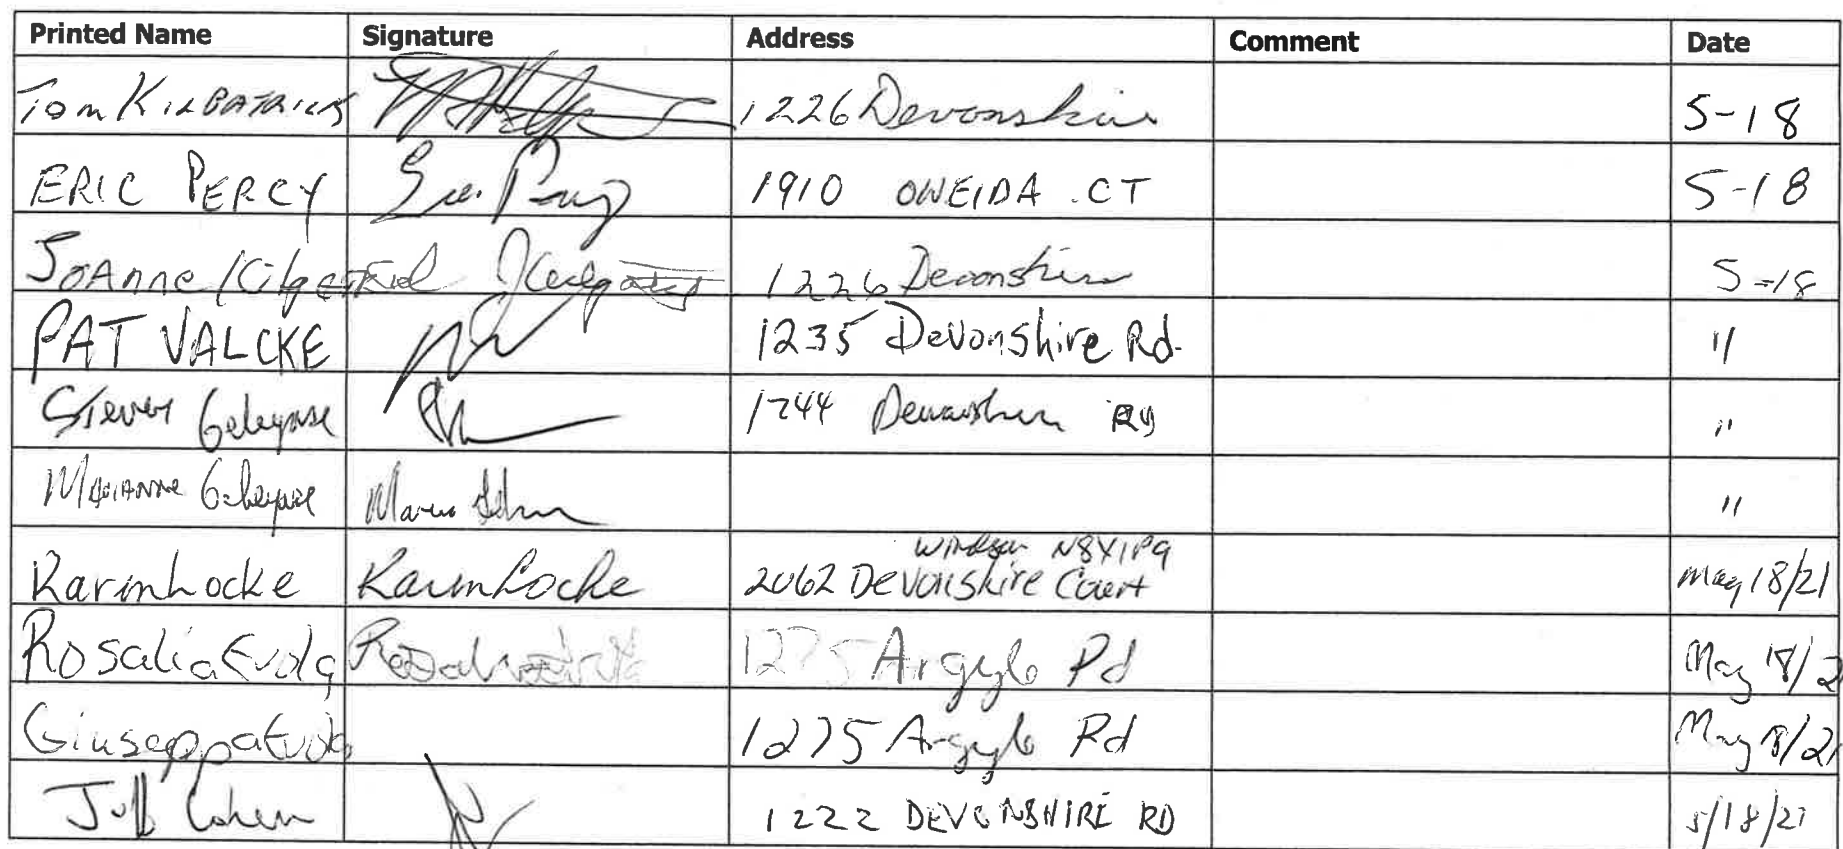 Printed Name Signature Address Comment Date
Tom KILPATRICK 1226 Devonshire 5-18
ERIC PERCY Eric Percy 1910 ONEIDA CT 5-18
JoAnne Kilpatrick 1226 Devonshire 5-18
PAT VALCKE 1235 Devonshire Rd. "
Steven 1244 Devonshire RD "
Marianne "
Windsor N8Y1P9
Karen Locke Karen Locke 2062 Devonshire Court May 18/21
Rosalia Evola Rosalia Evola 1275 Argyle Rd May 18/21
Giuseppa Evola 1275 Argyle Rd May 18/21
Jeff Cohen 1222 DEVONSHIRE RD 5/18/21